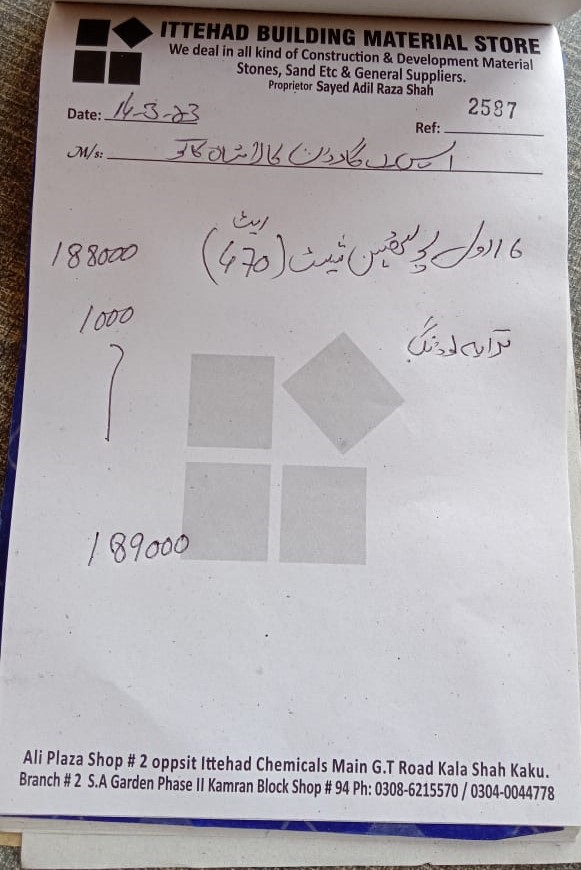 ITTEHAD BUILDING MATERIAL STORE
We deal in all kind of Construction & Development Material
Stones, Sand Etc & General Suppliers.
Proprietor Sayed Adil Raza Shah
2587
Date: 14-3-23
Ref:
M/s: ایس اے گارڈن کالا شاہ کاکو
ریٹ
16 رول (470) 188000
لوڈنگ 1000
189000
Ali Plaza Shop # 2 oppsit Ittehad Chemicals Main G.T Road Kala Shah Kaku.
Branch # 2 S.A Garden Phase II Kamran Block Shop # 94 Ph: 0308-6215570 / 0304-0044778